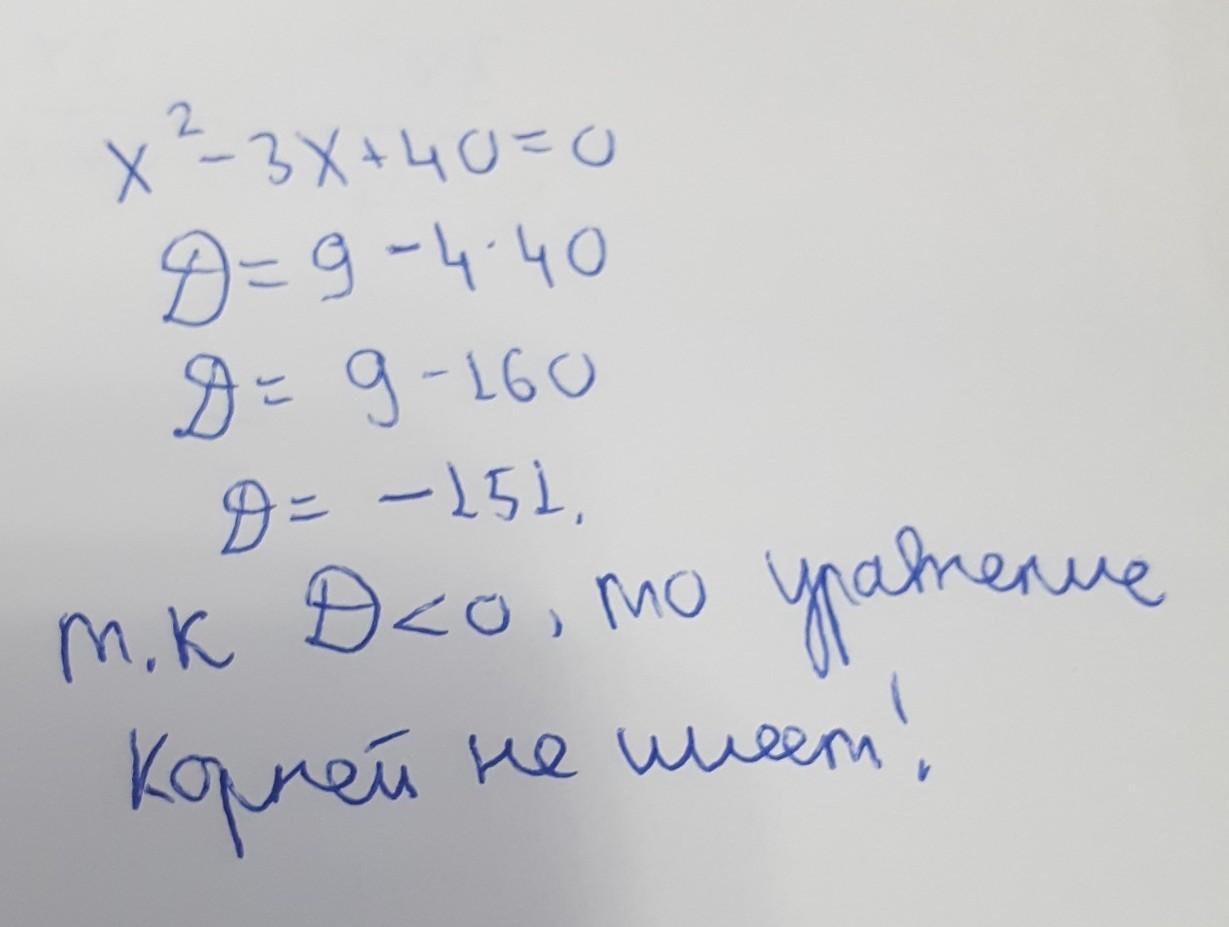 x² - 3x + 40 = 0
D = 9 - 4 · 40
D = 9 - 160
D = -151.
т.к D < 0, то уравнение
корней не имеет!